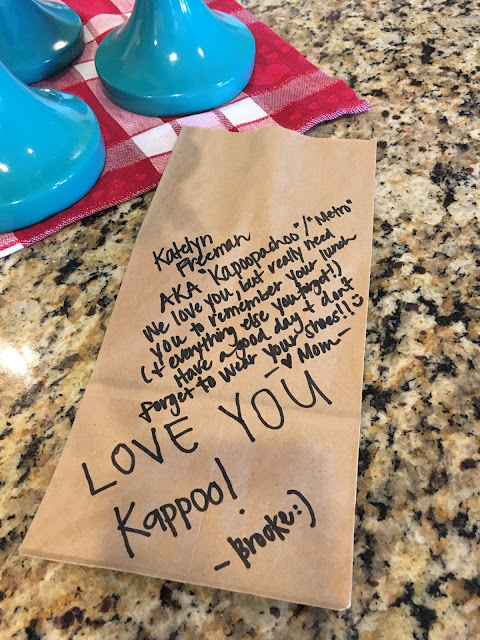 Katelyn
Freeman
AKA "Kapoopachoo"/"Netro"
We love you but really need
you to remember your lunch
(+ everything else you forget!)
Have a good day + don't
forget to wear your shoes!!
- ♥ Mom -
LOVE YOU
Kappoo!
- Brooke :)